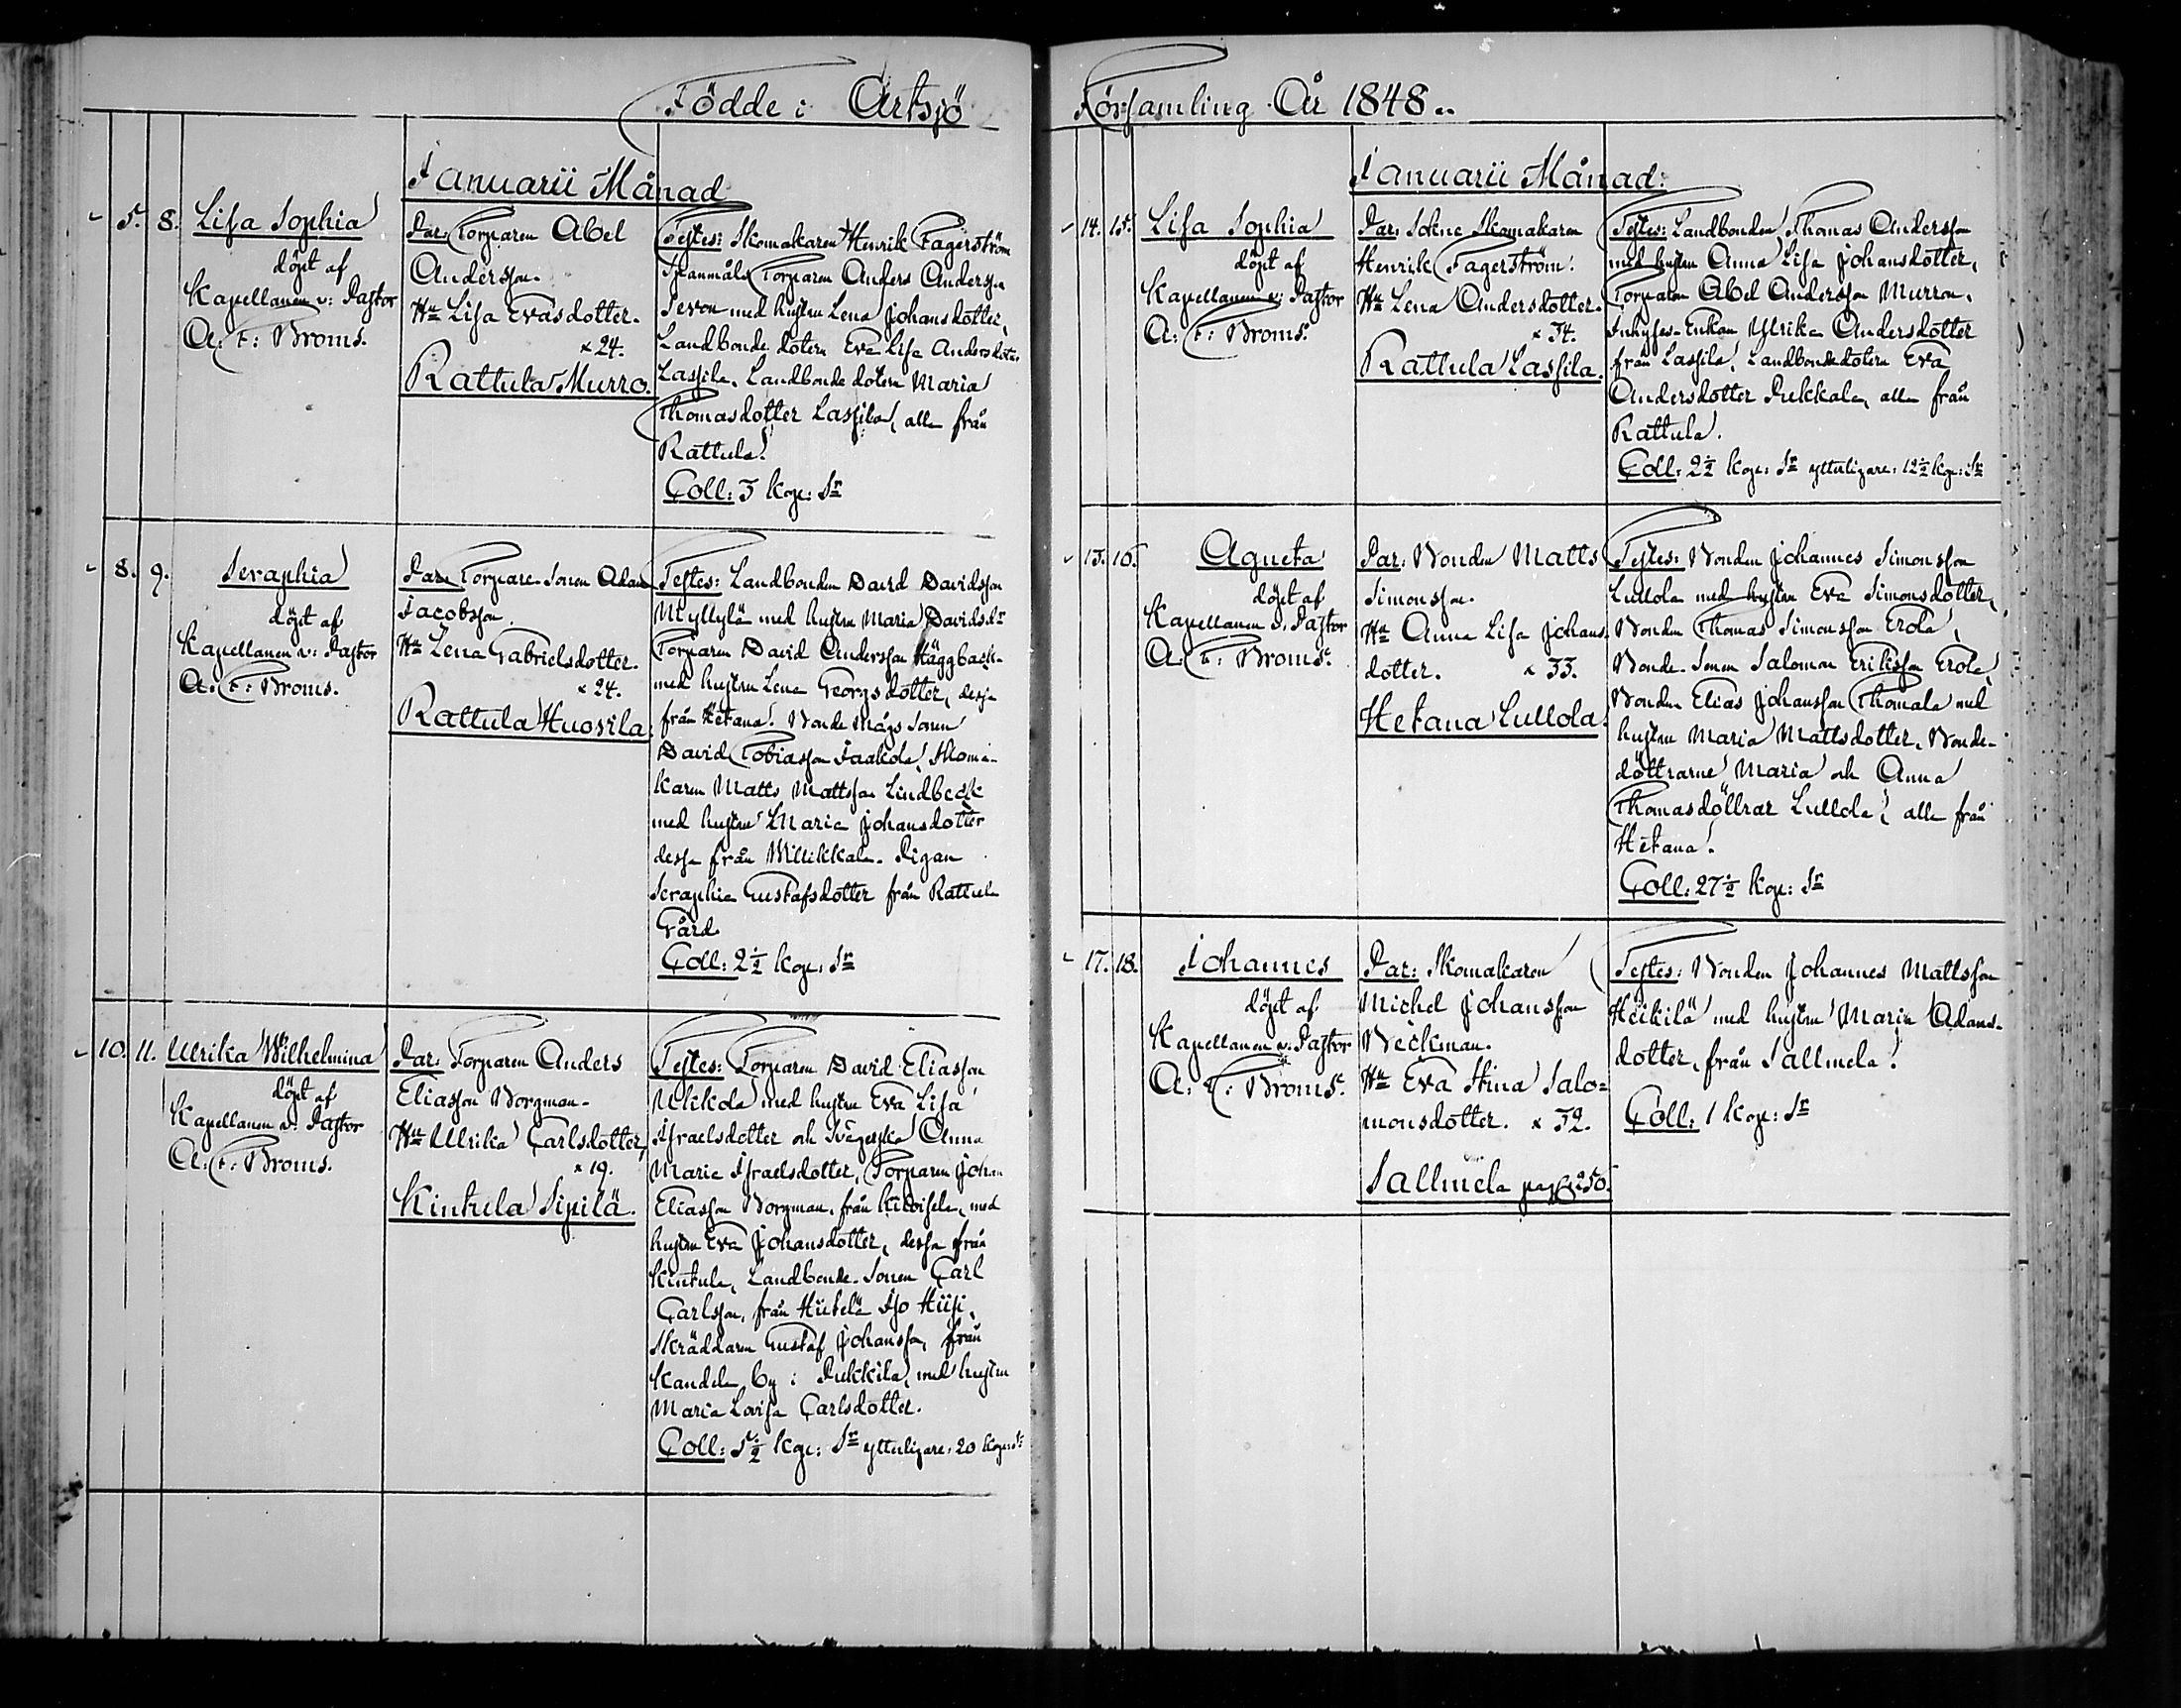 Födde i Artsjö
Januarii Månad
5. 8. Lisa Sophia
döpt af
Kapellanen v: Pastor
A: F: Broms.
Par: Torparen Abel
Andersson.
Hu Lisa Evasdotter.
x 24.
Rattula Murro.
Testes: Skomakaren Henrik Fagerström
Torparen Anders Andersson
med hustru Lena Johansdotter,
Landbonde dotern Eva Lisa Andersdoter
Lassila, Landbonde dotern Maria
Thomasdotter Lassila, alla från
Rattula.
Coll: 3 kop: Sr
8. 9. Seraphia
döpt af
Kapellanen v: Pastor
A: F: Broms.
Par: Torpare-Sonen Adam
Jacobsson.
Hu Lena Gabrielsdotter.
x 24.
Rattula Huovila.
Testes: Landbonden David Davidsson
Myllylä med hustru Maria Davidsdr
Torparen David Andersson Häggback
med hustru Lena Georgsdotter, dessa
från Hetana. Bonde Mågs Sonen
David Tobiasson Jaakola, Skoma-
karen Matts Mattsson Lindbeck
med hustru Maria Johansdotter
dessa från Willikkala. Pigan
Seraphia Gustafsdotter från Rattula
Gård.
Coll: 2½ kop: Sr
10. 11. Ulrika Wilhelmina
döpt af
Kapellanen v: Pastor
A: F: Broms.
Par: Torparen Anders
Eliasson Borgman.
Hu Ulrika Carlsdotter,
x 19.
Kinttula Sipilä.
Testes: Torparen David Eliasson
Ukkola med hustru Eva Lisa
Israelsdotter och Svägerska Anna
Maria Israelsdotter, Torparen Johan
Eliasson Borgman, från med
hustru Eva Johansdotter, dessa från
Kinttula, Landbonde-Sonen Carl
Carlsson, från Hiitelä Iso Hiisi,
Skräddaren Gustaf Johansson, från
Kandela by i Pukkila, med hustru
Maria Lovisa Carlsdotter.
Coll: 5½ kop: Sr ytterligare: 20 kop: Sr
Församling År 1848.
Januarii Månad:
14. 15. Lisa Sophia
döpt af
Kapellanen v: Pastor
A: F: Broms.
Par: Sokne Skomakaren
Henrik Fagerström.
Hu Lena Andersdotter.
x 34.
Rattula Lassila.
Testes: Landbonden Thomas Andersson
med hustru Anna Lisa Johansdotter,
Torparen Abel Andersson Murron,
Inhyses-Enkan Ulrika Andersdotter
från Lassila, Landbondedotern Eva
Andersdotter Pukkala, alla från
Rattula.
Coll: 2½ kop: Sr ytterligare: 12½ kop: Sr
13. 16. Agneta
döpt af
Kapellanen v: Pastor
A: F: Broms.
Par: Bonden Matts
Simonsson.
Hu Anna Lisa Johans
dotter. x 33.
Hetana Lullola.
Testes: Bonden Johannes Simonsson
Lullola med hustru Eva Simonsdotter,
Bonden Thomas Simonsson Erola,
Bonde-Sonen Salomon Eriksson Erola,
Bonden Elias Johansson Thomala med
hustru Maria Mattsdotter, Bonde-
döttrarne Maria och Anna
Thomasdöttrar Lullola, alla från
Hetana.
Coll: 27½ kop: Sr
17. 18. Johannes
döpt af
Kapellanen v: Pastor
A: F: Broms.
Par: Skomakaren
Michel Johansson
Beckman.
Hu Eva Stina Salo=
monsdotter. x 32.
Sallmela pag 250.
Testes: Bonden Johannes Mattsson
Heikilä med hustru Maria Adams-
dotter, från Sallmela.
Coll: 1 kop: Sr